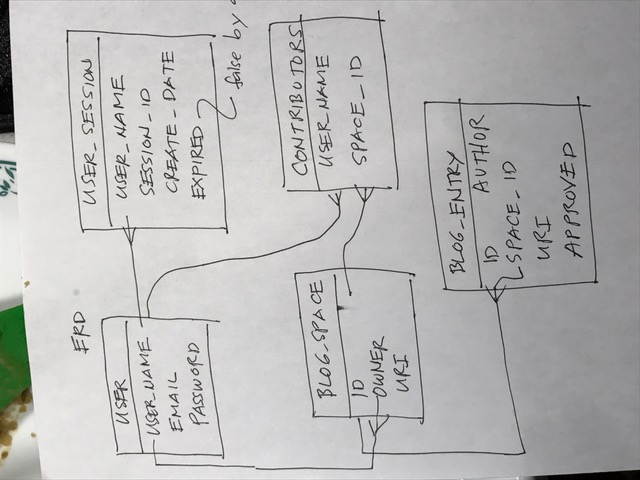 ERD
USER
USER_NAME
EMAIL
PASSWORD
USER_SESSION
USER_NAME
SESSION_ID
CREATE_DATE
EXPIRED
false by
BLOG_SPACE
ID
OWNER
URI
CONTRIBUTORS
USER_NAME
SPACE_ID
BLOG_ENTRY
ID AUTHOR
SPACE_ID
URI
APPROVED